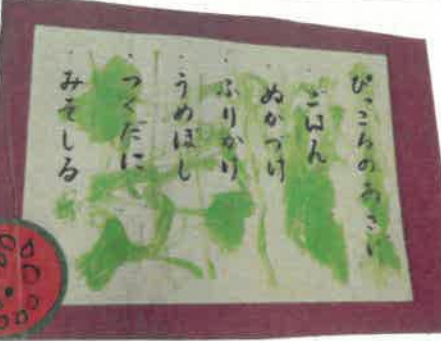 ぴっころのあさい
・ごはん
・ぬかづけ
・ふりかけ
・うめぼし
・つくだに
・みそしる